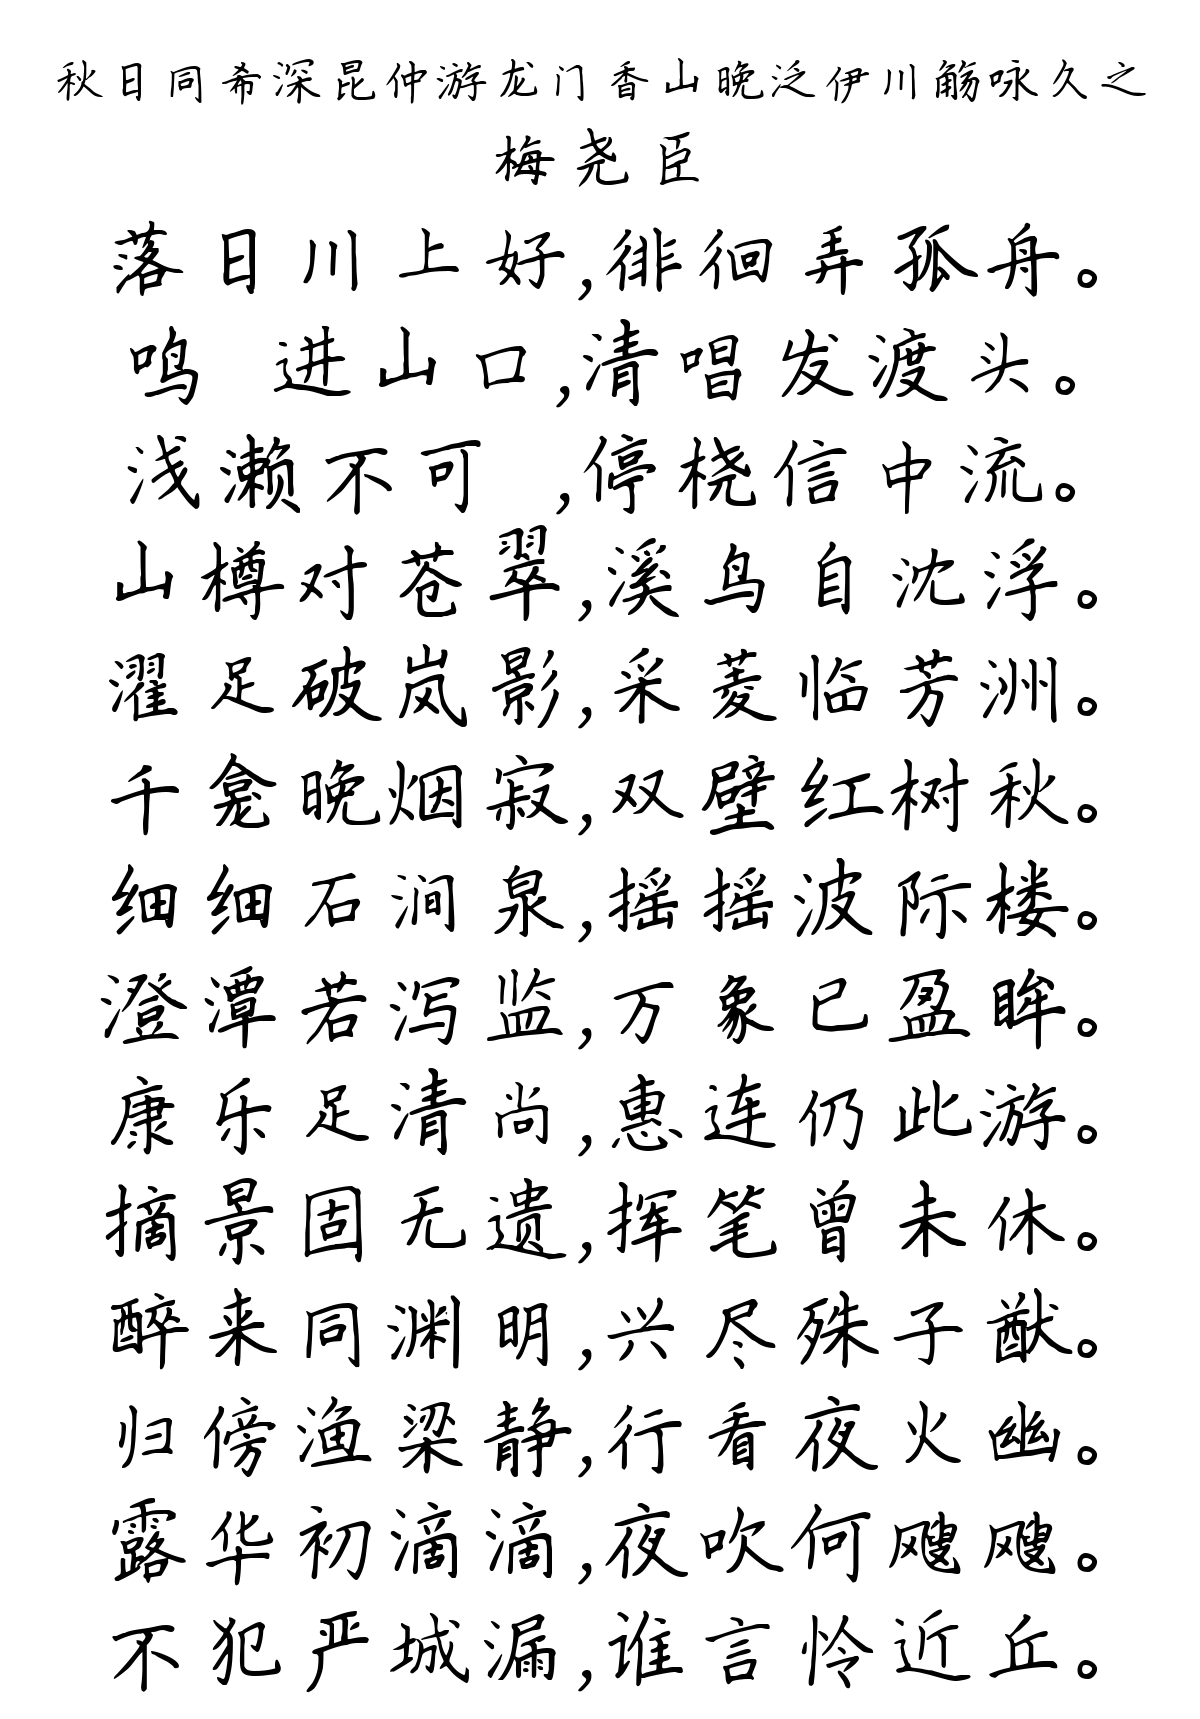 秋日同希深昆仲游龙门香山晚泛伊川觞咏久之
梅尧臣
落日川上好,徘徊弄孤舟。
鸣 进山口,清唱发渡头。
浅濑不可 ,停桡信中流。
山樽对苍翠,溪鸟自沈浮。
濯足破岚影,采菱临芳洲。
千龛晚烟寂,双壁红树秋。
细细石涧泉,摇摇波际楼。
澄潭若泻监,万象已盈眸。
康乐足清尚,惠连仍此游。
摘景固无遗,挥笔曾未休。
醉来同渊明,兴尽殊子猷。
归傍渔梁静,行看夜火幽。
露华初滴滴,夜吹何飕飕。
不犯严城漏,谁言怜近丘。